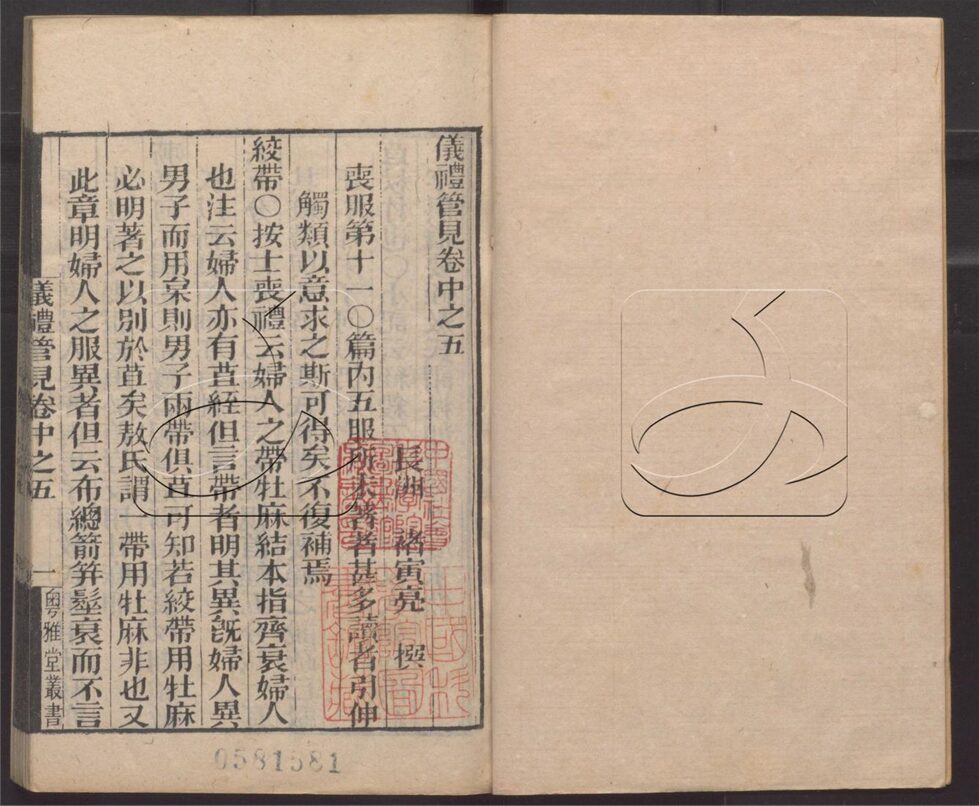 儀禮管見卷中之五
長洲 褚寅亮 撰
喪服第十一〇篇內五服所未著者甚多讀者引伸
觸類以意求之斯可得矣不復補焉
絞帶〇按士喪禮云婦人之帶牡麻結本指齊衰婦人
也注云婦人亦有苴絰但言帶者明其異旣婦人異
男子而用枲則男子兩帶俱苴可知若絞帶用牡麻
必明著之以別於苴矣敖氏謂帶用牡麻非也又
此章明婦人之服異者但云布總箭笄髽衰而不言
儀禮管見卷中之五 一 粵雅堂叢書
0581581